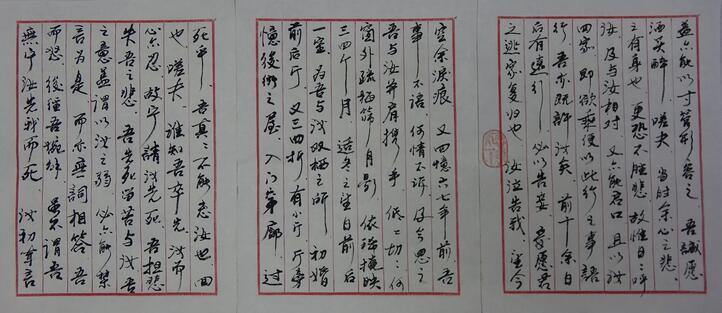 無寧汝先我而死、汝初聞言
而怒、後經吾婉解、虽不謂吾
言為是、而亦無詞相答、吾
之意蓋謂以汝之弱、必不能禁
失吾之悲、吾先死留苦与汝、吾
心不忍、故宁請汝先死、吾担悲
也、嗟夫、谁知吾卒先汝而
死乎、吾真々不能忘汝也、回
憶後街之屋、入门穿廊、過
前后厅、又三四折、有小厅、厅旁
一室、为吾与汝双栖之所、初婚
三四个月、适冬之望日前后、
窗外疏梅筛月影、依稀掩映
吾与汝并肩携手、低々切々、何
事不语、何情不诉、及今思之
空余淚痕、又回憶六七年前、吾
之逃家复归也、汝泣告我、望今
后有遠行、必以告妾、妾愿君
行、吾亦既許汝矣、前十余日
回家、即欲乘便以此行之事、語
汝、及与汝相对、又不能启口、且以汝
之有身也、更恐不胜悲、故惟日々呼
酒买醉、嗟夫、当时余心之悲、
蓋不能以寸管形容之、吾誠愿